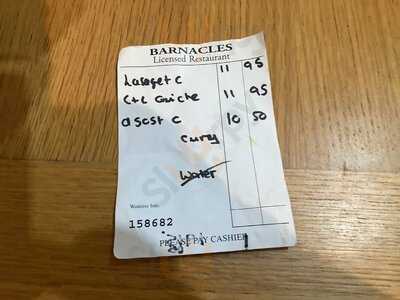 BARNACLES
Licensed Restaurant
Lasaget C 11 95
C+L Quiche 11 95
a sost C 10 50
Curry
Water
Waitress Info:
158682
PLEASE PAY CASHIER